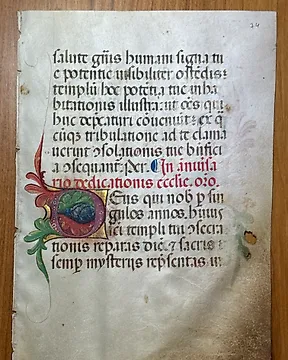 24
salute gn̄is humani signa tu
e potentie uisibiliter ostēdis:
templū hoc potētia tue inha
bitationis illustra: ut oēs qui
huc dep̄caturi cōueniūt: ex q
cūq; tribulatione ad te clama
uerint ↄsolationis tue bn̄fici
a ↄsequant̄. Per. In aniuersa
rio dedicationis ecclie. oro.
Deus qui nob̄ p̄ sin
gulos annos, huius
sc̄i templi tui ↄsecra
tionis reparas diē: & sacris
semp̄ mysterijs rep̄sentas